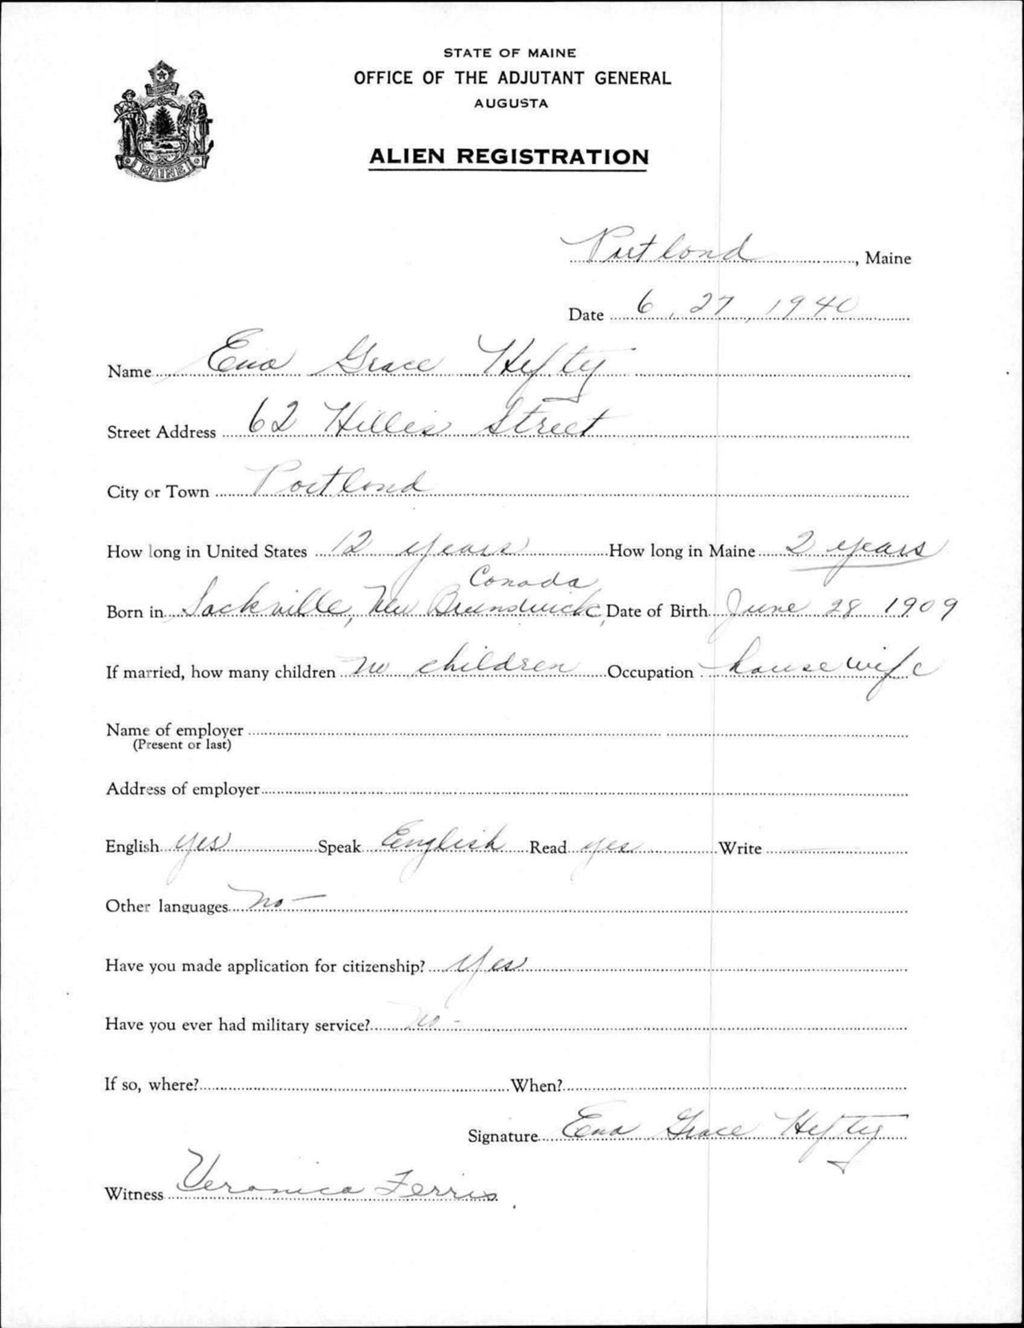 STATE OF MAINE
OFFICE OF THE ADJUTANT GENERAL
AUGUSTA
ALIEN REGISTRATION
MAINE
Portland, Maine
Date 6, 27, 1940
Name Ena Grace Hefty
Street Address 62 Hillis Street
City or Town Portland
How long in United States 12 years How long in Maine 2 years
Canada
Born in Sackville, New Brunswick, Date of Birth June 28 1909
If married, how many children no children Occupation housewife
Name of employer
(Present or last)
Address of employer
English yes Speak English Read yes Write
Other languages no -
Have you made application for citizenship? Yes
Have you ever had military service? no -
If so, where? When?
Signature Ena Grace Hefty
Witness Veronica Ferris